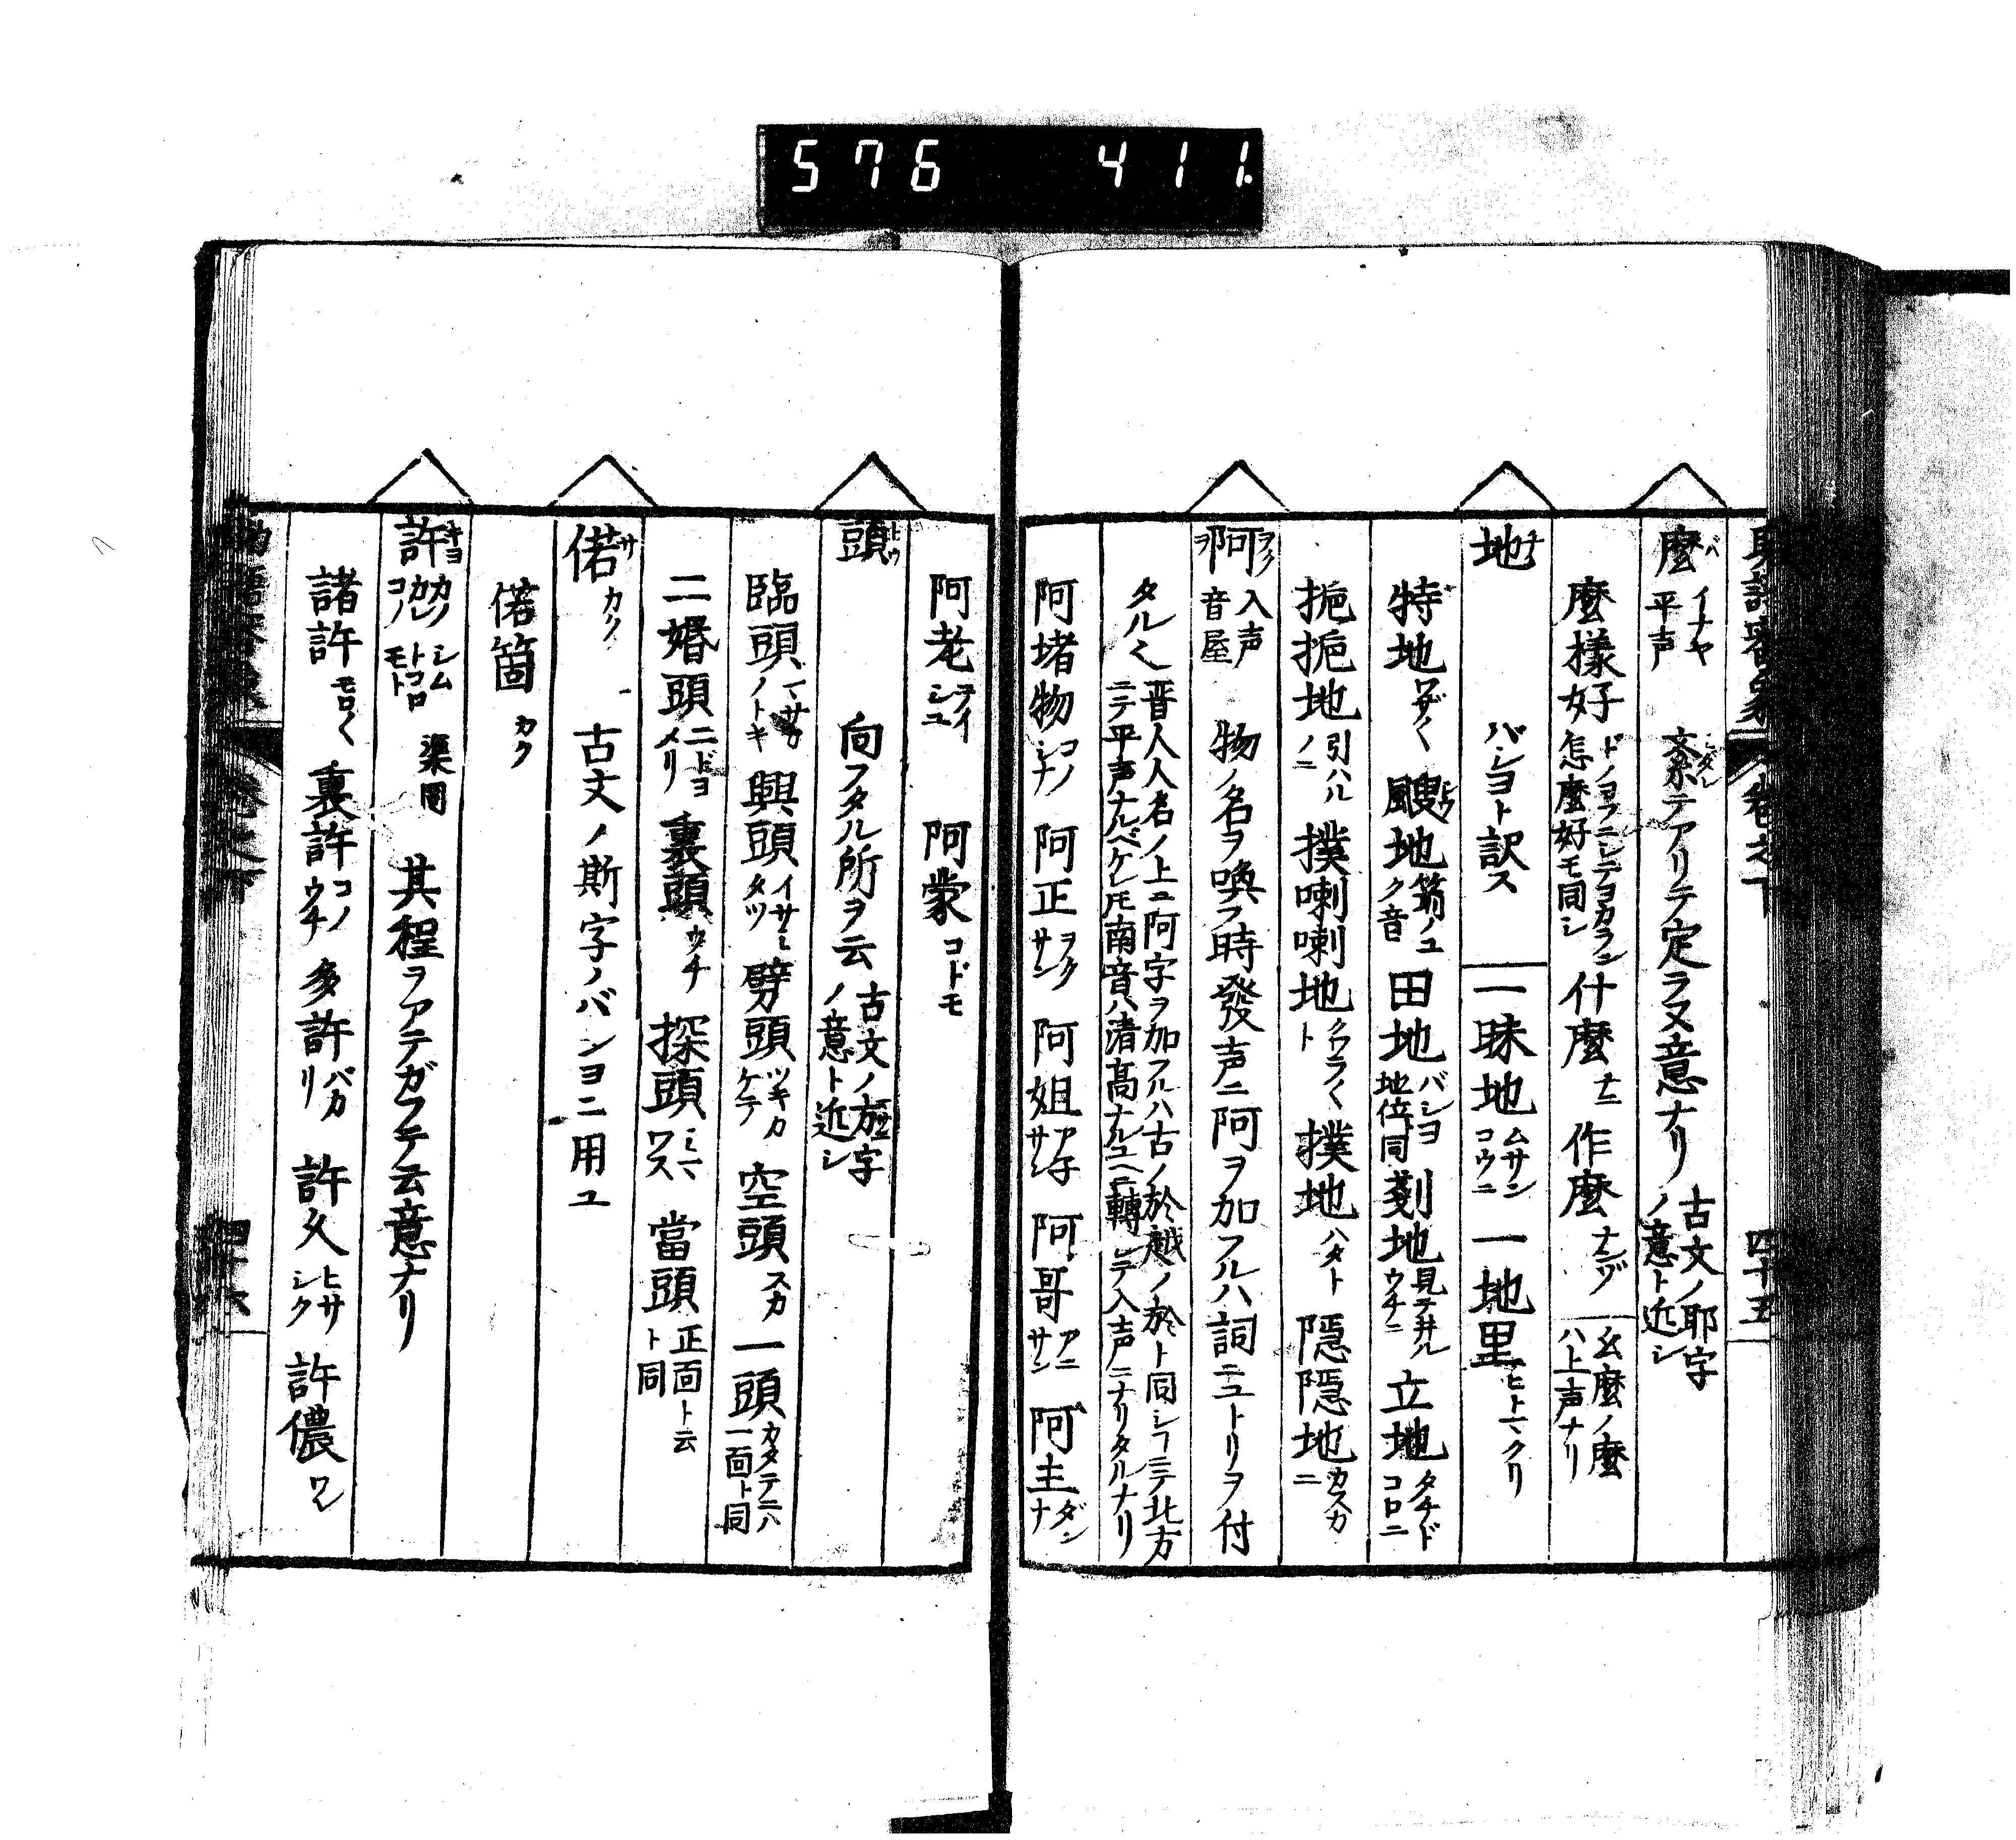 576 411.
卷之下 四十五
麼 バ イナヤ 平声 紊テアリテ定ラヌ意ナリ 古文ノ耶字ノ意ト近シ
麼樣好 ドノヨフニシテヨカラン 怎麼好モ同シ 什麼 ナニ 作麼 ナンゾ 玄麼ノ麼ハ上声ナリ
地 バショト訳ス 一昧地 ムサンコウニ 一地里 ヒトマクリ
特地 ワザ〱 颼地 箭ノユク音 田地 バショ 地位同 剗地 見テ井ルウチニ 立地 タチドコロニ
挹挹地 引ハルノニ 撲喇喇地 クワラ〱ト 撲地 ハタト 隠隠地 カスカニ
阿 ヲク 入声 音屋 物ノ名ヲ喚フ時發声ニ阿ヲ加フルハ詞ニユトリヲ付
タル〻 晋人人名ノ上ニ阿字ヲ加フルハ古ノ於越ノ於ト同シヿニテ北方ニテ平声ナルベケレ𪜈南音ハ清高ナルユヘニ轉シテ入声ニナリタルナリ
阿堵物 コノシナ 阿正 ヲクサン 阿姐 アネサン 阿哥 アニサン 阿主 ダンナ
阿老 ヲイシユ 阿蒙 コドモ
頭 トウ 向フタル所ヲ云 古文ノ旃字ノ意ト近シ
臨頭 ノトキ 興頭 イサミタツ 劈頭 ツキカケテ 空頭 スカ 一頭 カタテニハ 一面ト同
二婚頭 ニドヨメリ 裏頭 ウチ 探頭 ミマワス 當頭 正面ト云ト同
偌 サ カク 古文ノ斯字ノバショニ用ユ
偌箇 カク
許 キヨ カノ カレ コノ シム トコロ モト 渠同 其程ヲアテガフテ云意ナリ
諸許 モロ〱 裏許 コノウチ 多許 バカリ 許久 ヒサシク 許儂 ワレ